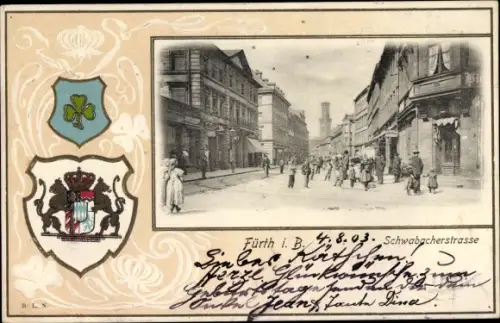 Fürth i. B.
Schwabacherstrasse
4.8.03.
Liebes Käthchen!
Herzl. Glückwünsche zum
Geburtstage senden Dir Dein
Onkel Jean & Tante Dina.
D. L. N.